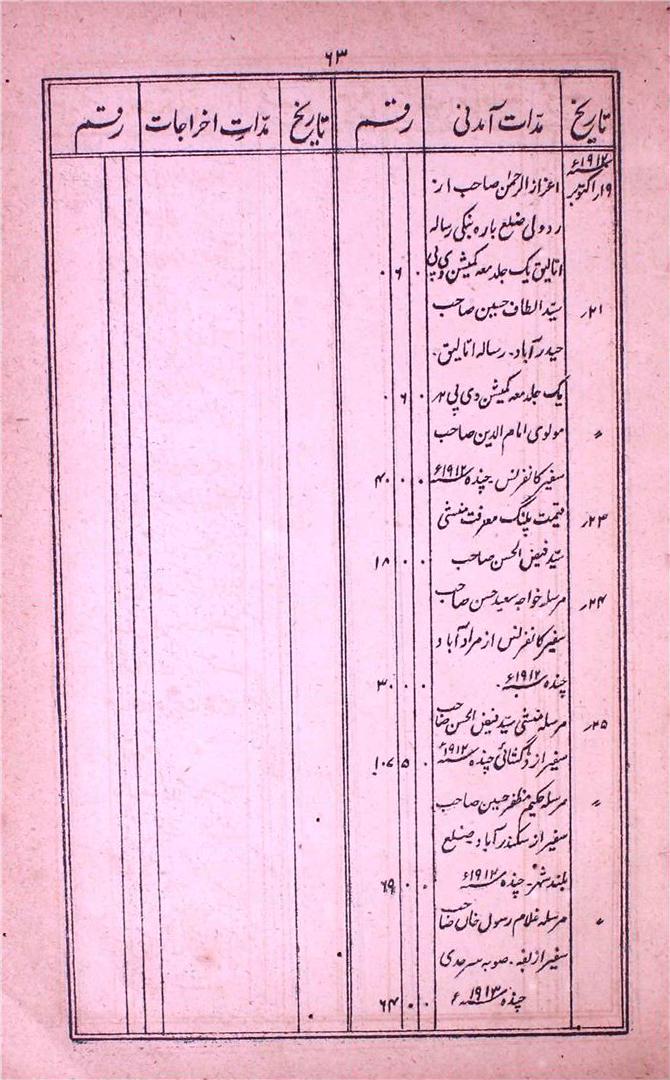 ۶۳
تاریخ مدّات آمدنی رقم تاریخ مدّاتِ اخراجات رقم
۱۹۱۲ء
۱۹ر اکتوبر اعزاز الرحمٰن صاحب از
ردولی ضلع بارہ بنکی رسالہ
اتالیق یک جلد معہ کمیشن وی پی ۰ ۶ ۰
۲۱ر سیّد الطاف حسین صاحب
حیدرآباد۔ رسالہ اتالیق۔
یک جلد معہ کمیشن وی پی ۲ر ۰ ۶ ۰
〃 مولوی امام الدین صاحب
سفیر کانفرنس۔ چندہ ۱۹۱۲ء ۰ ۰ ۴۰
۲۳ر قیمت پلنگ معرفت منشی
سیّد فیض الحسن صاحب ۰ ۰ ۱۸
۲۴ر مرسلہ خواجہ سعید حسن صاحب
سفیر کانفرنس از مرادآباد
چندہ ۱۹۱۲ء۔ ۰ ۰ ۳۰
۲۵ر مرسلہ منشی سیّد فیض الحسن صاحب
سفیر از چندہ ۱۹۱۲ء ۰ ۵
〃 مرسلہ حکیم مظفر حسین صاحب
سفیر از سکندرآباد ضلع
بلند شہر۔ چندہ ۱۹۱۲ء ۰ ۰ ۶۹
〃 مرسلہ غلام رسول خاں صاحب
سفیر از صوبہ سرحدی
چندہ ۱۹۱۳ء ۰ ۰ ۶۴